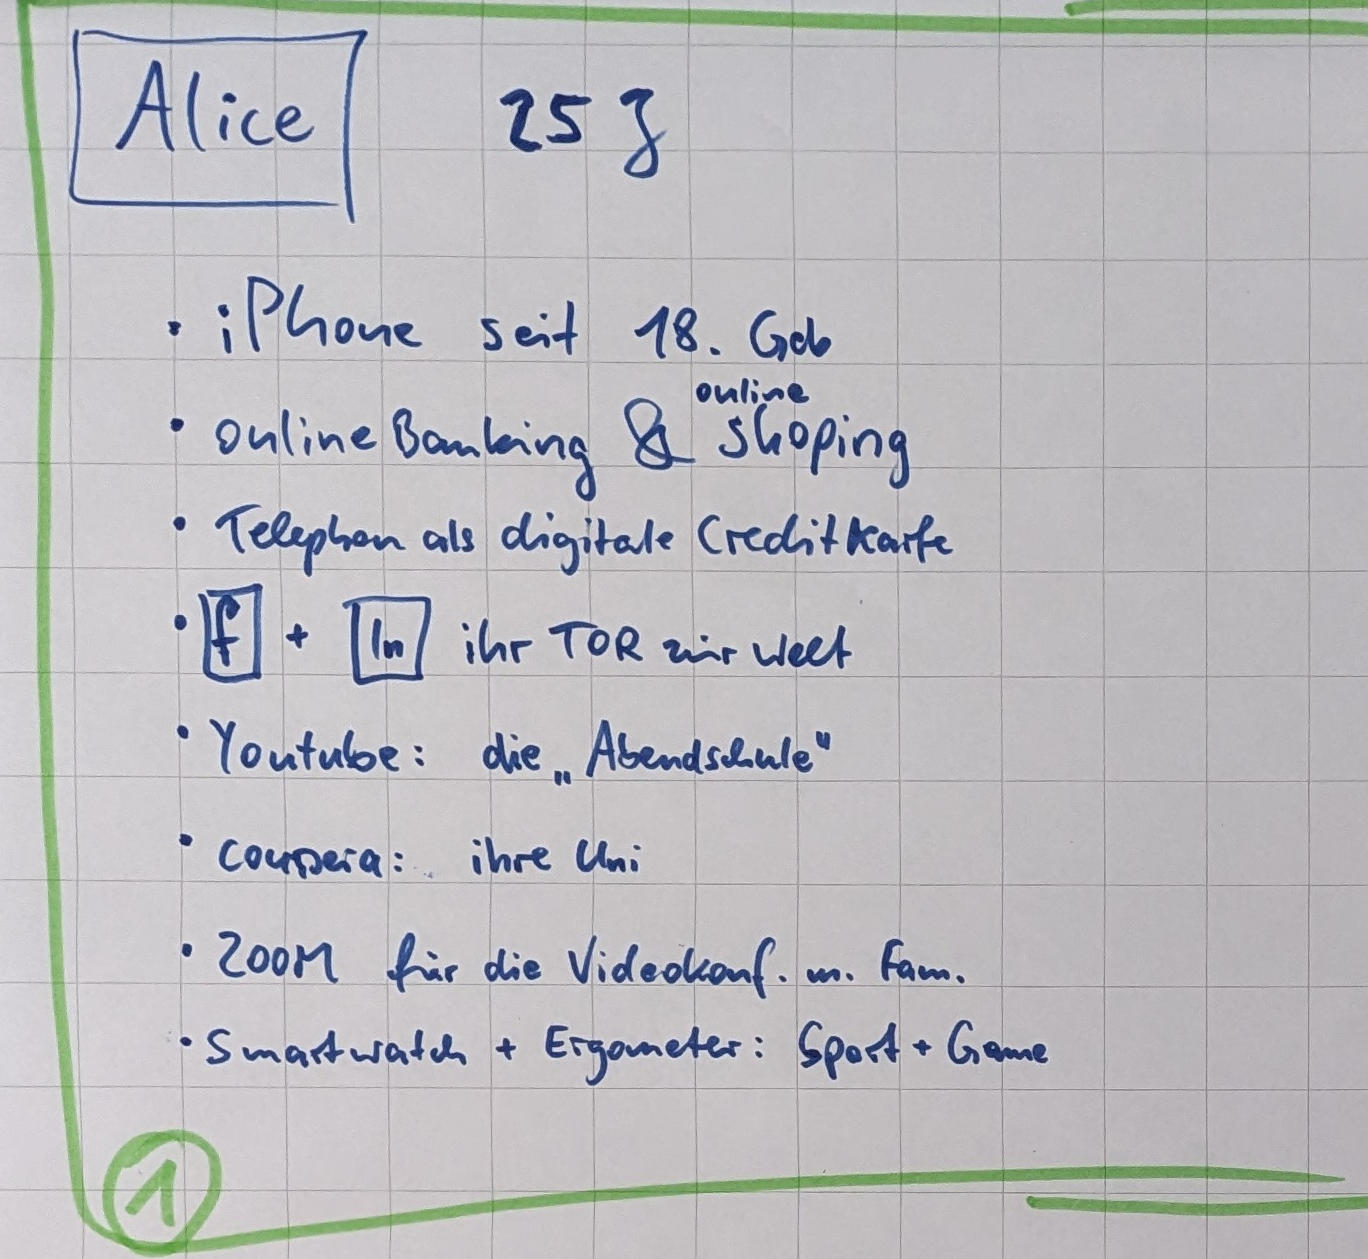 Alice 25 J
• iPhone seit 18. Geb
• online Banking & online shoping
• Telephon als digitale Creditkarte
• f + In ihr TOR zur Welt
• Youtube: die „Abendschule"
• coursera: ihre Uni
• ZOOM für die Videokonf. m. Fam.
• Smartwatch + Ergometer: Sport + Game
1